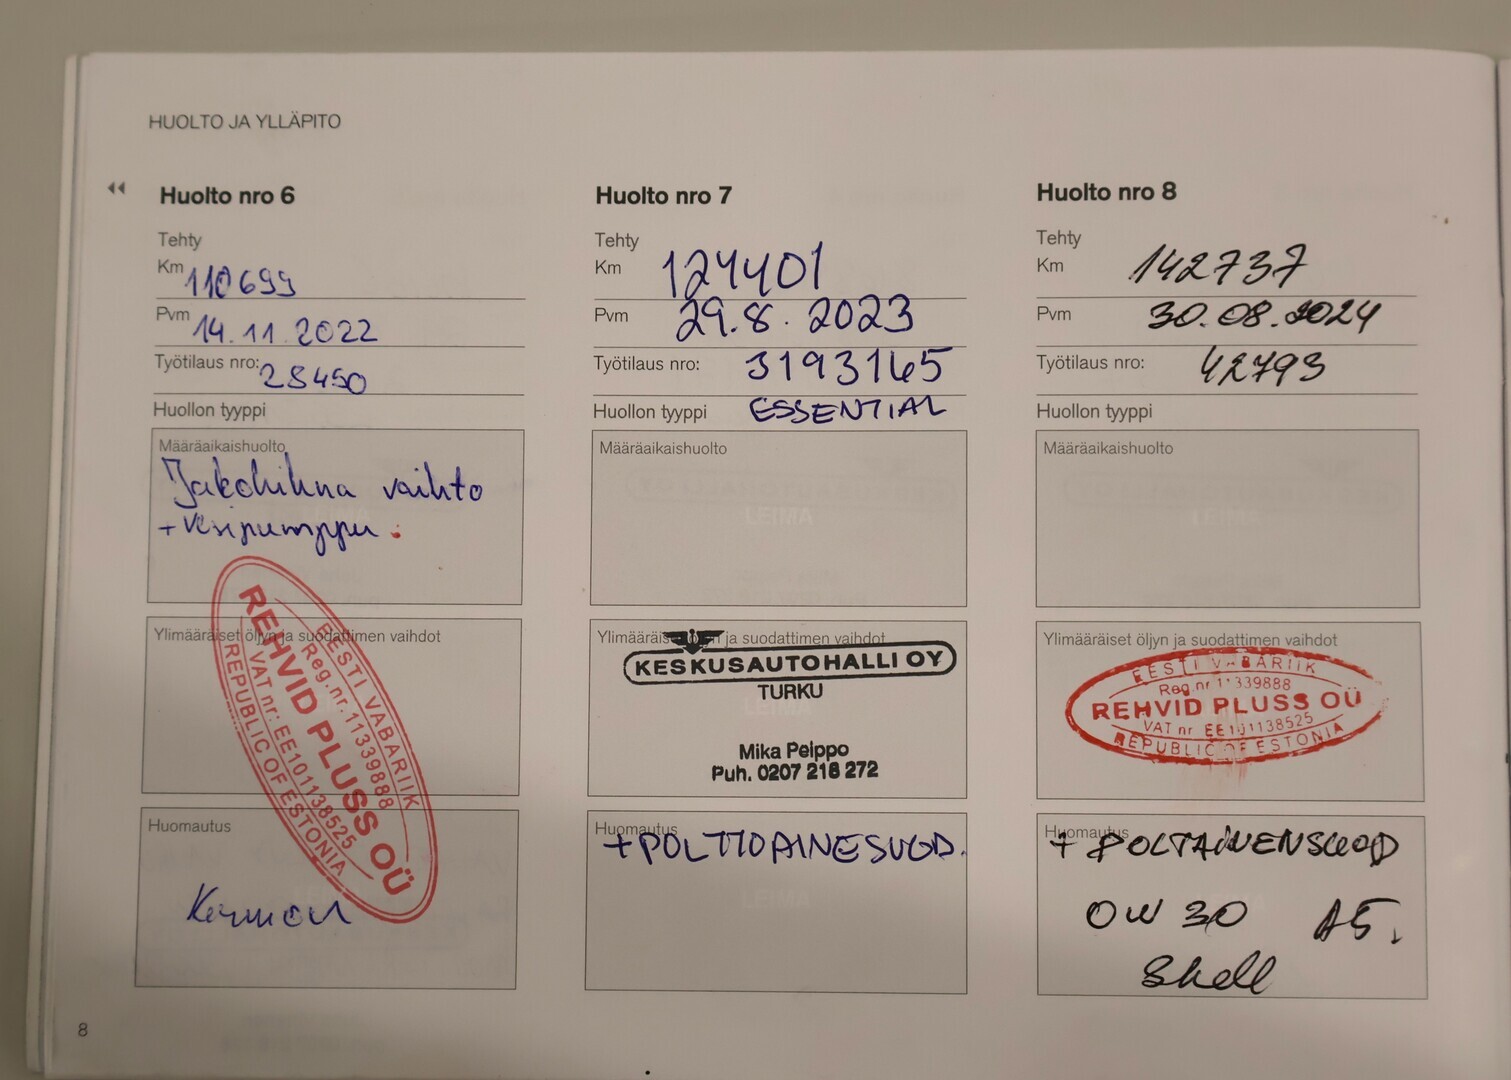 HUOLTO JA YLLÄPITO
Huolto nro 6
Tehty
Km 110699
Pvm 14.11.2022
Työtilaus nro: 28450
Huollon tyyppi
Määräaikaishuolto
Jakohihna vaihto
+ Vesipumppu.
Ylimääräiset öljyn ja suodattimen vaihdot
EESTI VABARIIK
Reg.nr.11339888
REHVID PLUSS OÜ
VAT nr: EE101138525
REPUBLIC OF ESTONIA
Huomautus
Huolto nro 7
Tehty
Km 124401
Pvm 29.8.2023
Työtilaus nro: 3193165
Huollon tyyppi ESSENTIAL
Määräaikaishuolto
LEIMA
Ylimääräiset öljyn ja suodattimen vaihdot
KESKUSAUTOHALLI OY
TURKU
Mika Pelppo
Puh. 0207 218 272
Huomautus
+POLTTOAINESUOD.
Huolto nro 8
Tehty
Km 142737
Pvm 30.08.2024
Työtilaus nro: 42793
Huollon tyyppi
Määräaikaishuolto
LEIMA
Ylimääräiset öljyn ja suodattimen vaihdot
EESTI VABARIIK
Reg.nr 11339888
REHVID PLUSS OÜ
VAT nr EE101138525
REPUBLIC OF ESTONIA
Huomautus
+ POLTAINENSUOD
0W 30 A5.
Shell
8